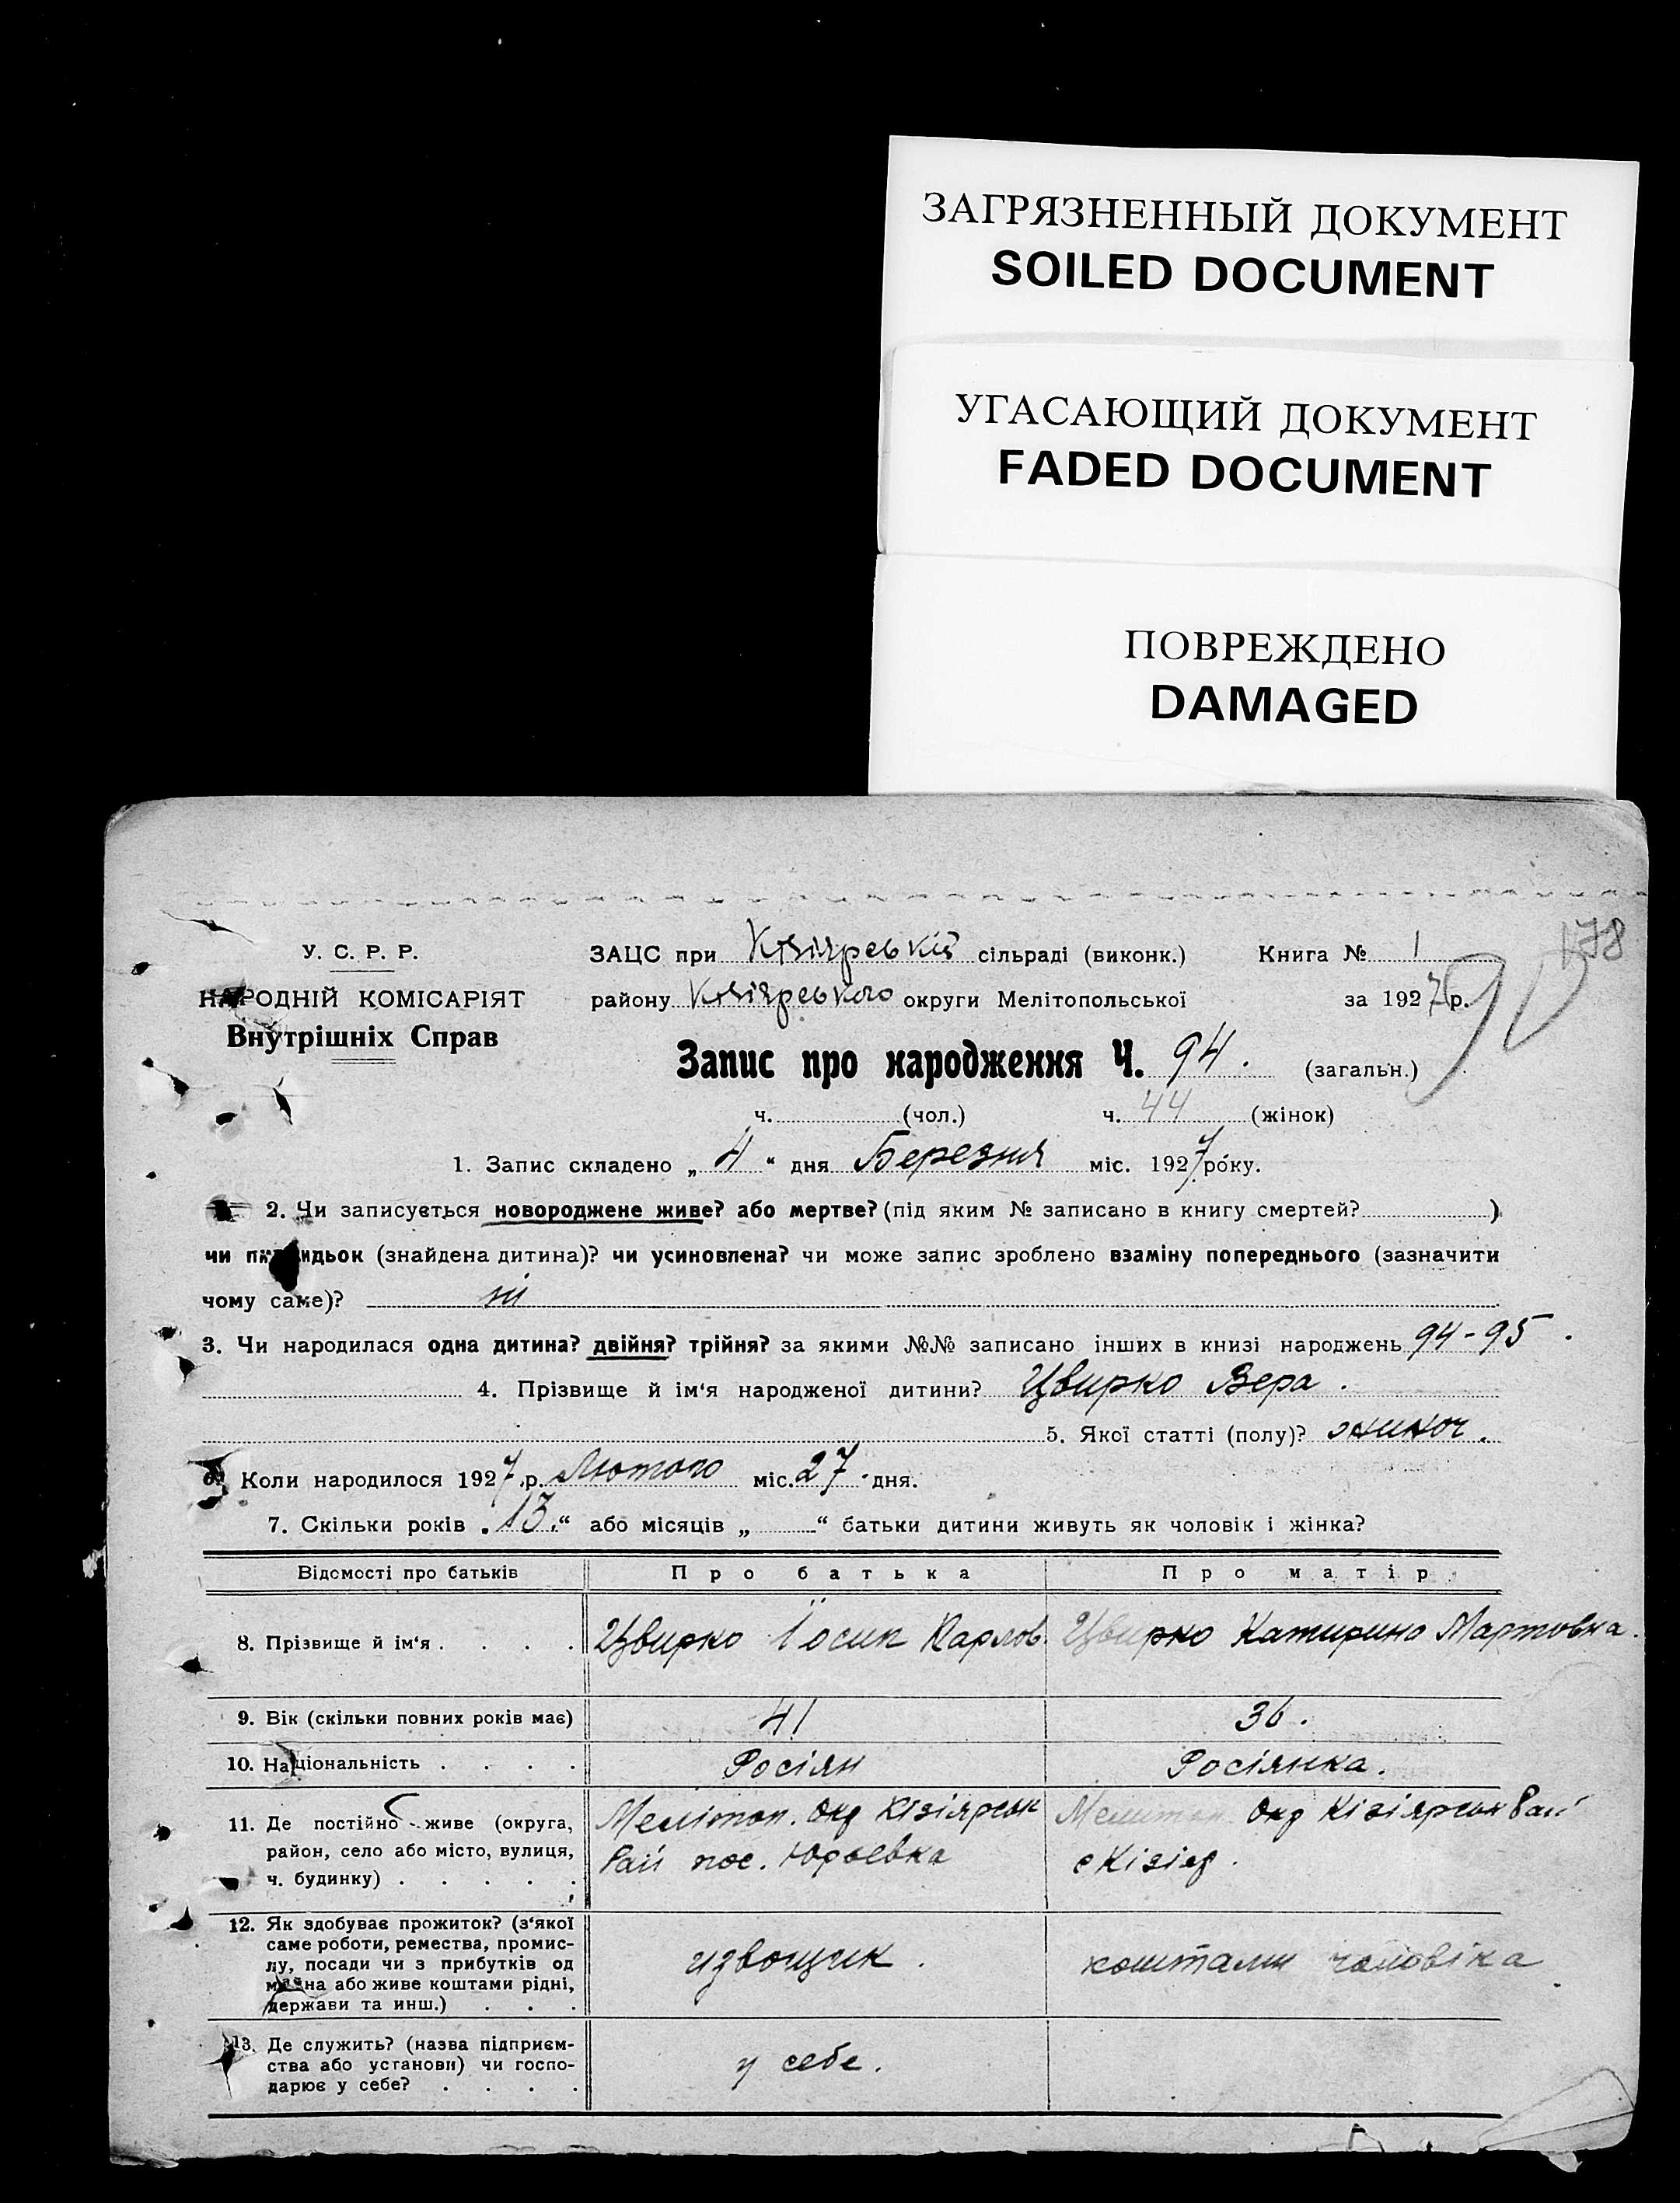 ЗАГРЯЗНЕННЫЙ ДОКУМЕНТ
SOILED DOCUMENT
УГАСАЮЩИЙ ДОКУМЕНТ
FADED DOCUMENT
ПОВРЕЖДЕНО
DAMAGED
178
У. С. Р. Р.
НАРОДНІЙ КОМІСАРІЯТ
Внутрішніх Справ
ЗАЦС при Кізіярській сільраді (виконк.) Книга № 1
району Кізіярського округи Мелітопольської за 1927 р.
90
Запис про народження Ч. 94. (загальн.)
ч. (чол.) ч. 44 (жінок)
1. Запис складено „ 4 “ дня Березня міс. 1927 року.
2. Чи записується новороджене живе? або мертве? (під яким № записано в книгу смертей? )
чи підкидьок (знайдена дитина)? чи усиновлена? чи може запис зроблено взаміну попереднього (зазначити
чому саме)? ні
3. Чи народилася одна дитина? двійня? трійня? за якими №№ записано інших в книзі народжень 94-95.
4. Прізвище й ім'я народженої дитини? Цвирко Вера.
5. Якої статті (полу)? жиноч.
6. Коли народилося 1927 р. Лютого міс. 27 дня.
7. Скільки років „ 13 “ або місяців „ “ батьки дитини живуть як чоловік і жінка?
Відомості про батьків Про батька Про матір
8. Прізвище й ім'я . . . . Цвирко Іосип Карлов. Цвирко Катирина Мартовна.
9. Вік (скільки повних років має) 41 36.
10. Національність . . . . Росіян Росіянка.
11. Де постійно живе (округа,
район, село або місто, вулиця,
ч. будинку) . . . . .
Мелітоп. Окр Кізіярськ
Рай пос. Юрьевка
Мелитоп. Окр Кізіярськ Рай
с Кізіяр.
12. Як здобуває прожиток? (з'якої
саме роботи, ремества, промис-
лу, посади чи з прибутків од
майна або живе коштами рідні,
держави та инш.) . . .
извощик.
коштами чоловіка
13. Де служить? (назва підприєм-
ства або установи) чи госпо-
дарює у себе? . . . .
у себе.